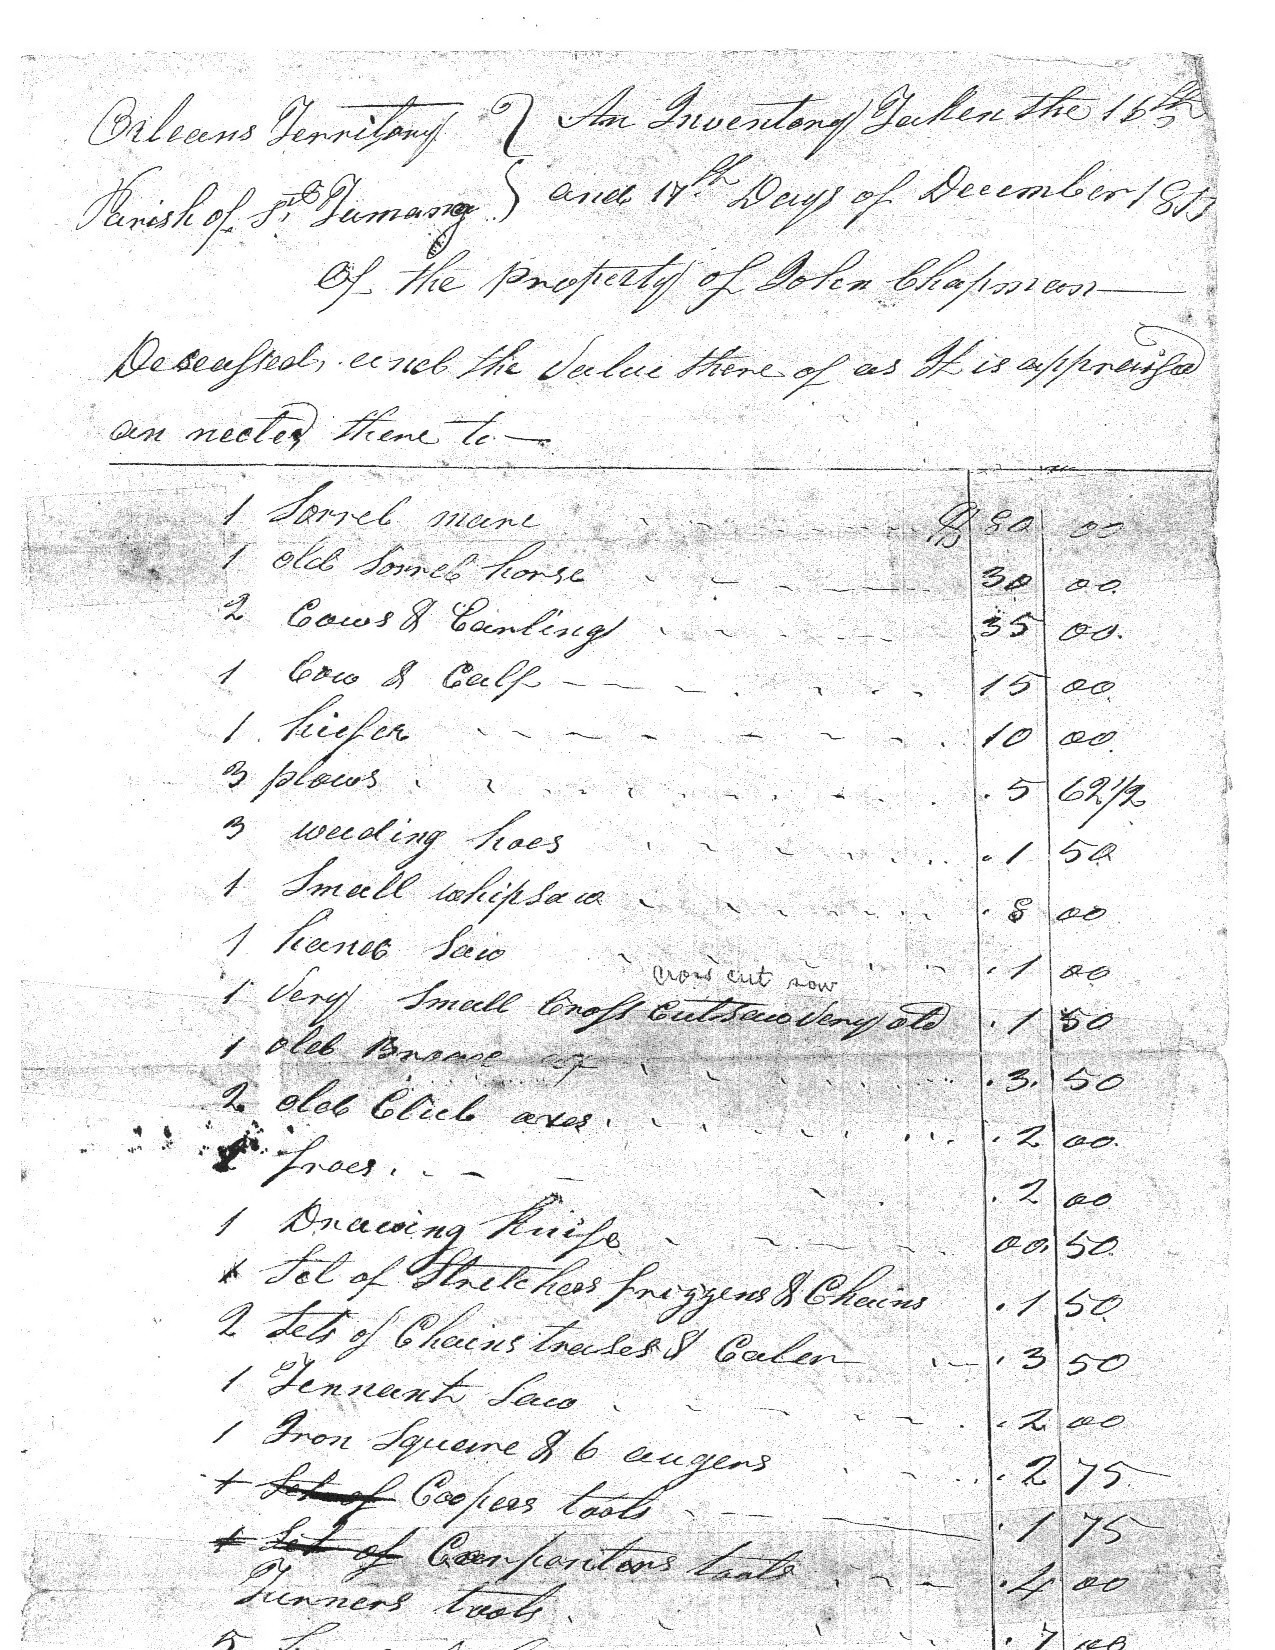 Orleans Territory } An Inventory Taken the 16th
Parish of St. Tamany } and 17th Days of December 181
Of the property of John Chapman
Deceassed, and the Value there of as It is appraised
an nected there to —
1 Sorrel mare $ 80 00
1 old Sorrel horse 30 00
2 Cows & Earlings 35 00
1 Cow & Calf 15 00
1 hiefer 10 00
3 plows 5 62 1/2
3 weeding hoes 1 50
1 Small whipsaw 8 00
1 hand Saw 1 00
cross cut saw
1 Very Small Cross Cutsaw Very old 1 50
1 old Broad ax 3 50
2 old Club axes 2 00
froes 2 00
1 Drawing Knife 00 50
Set of Stretchers friggens & Chains 1 50
2 Sets of Chains trases & 3 50
1 Tennant Saw 2 00
1 Iron Square & 6 augers 2 75
Set of Coopers tools 1 75
Set of Carpontors tools 4 00
Turners tools 7
5